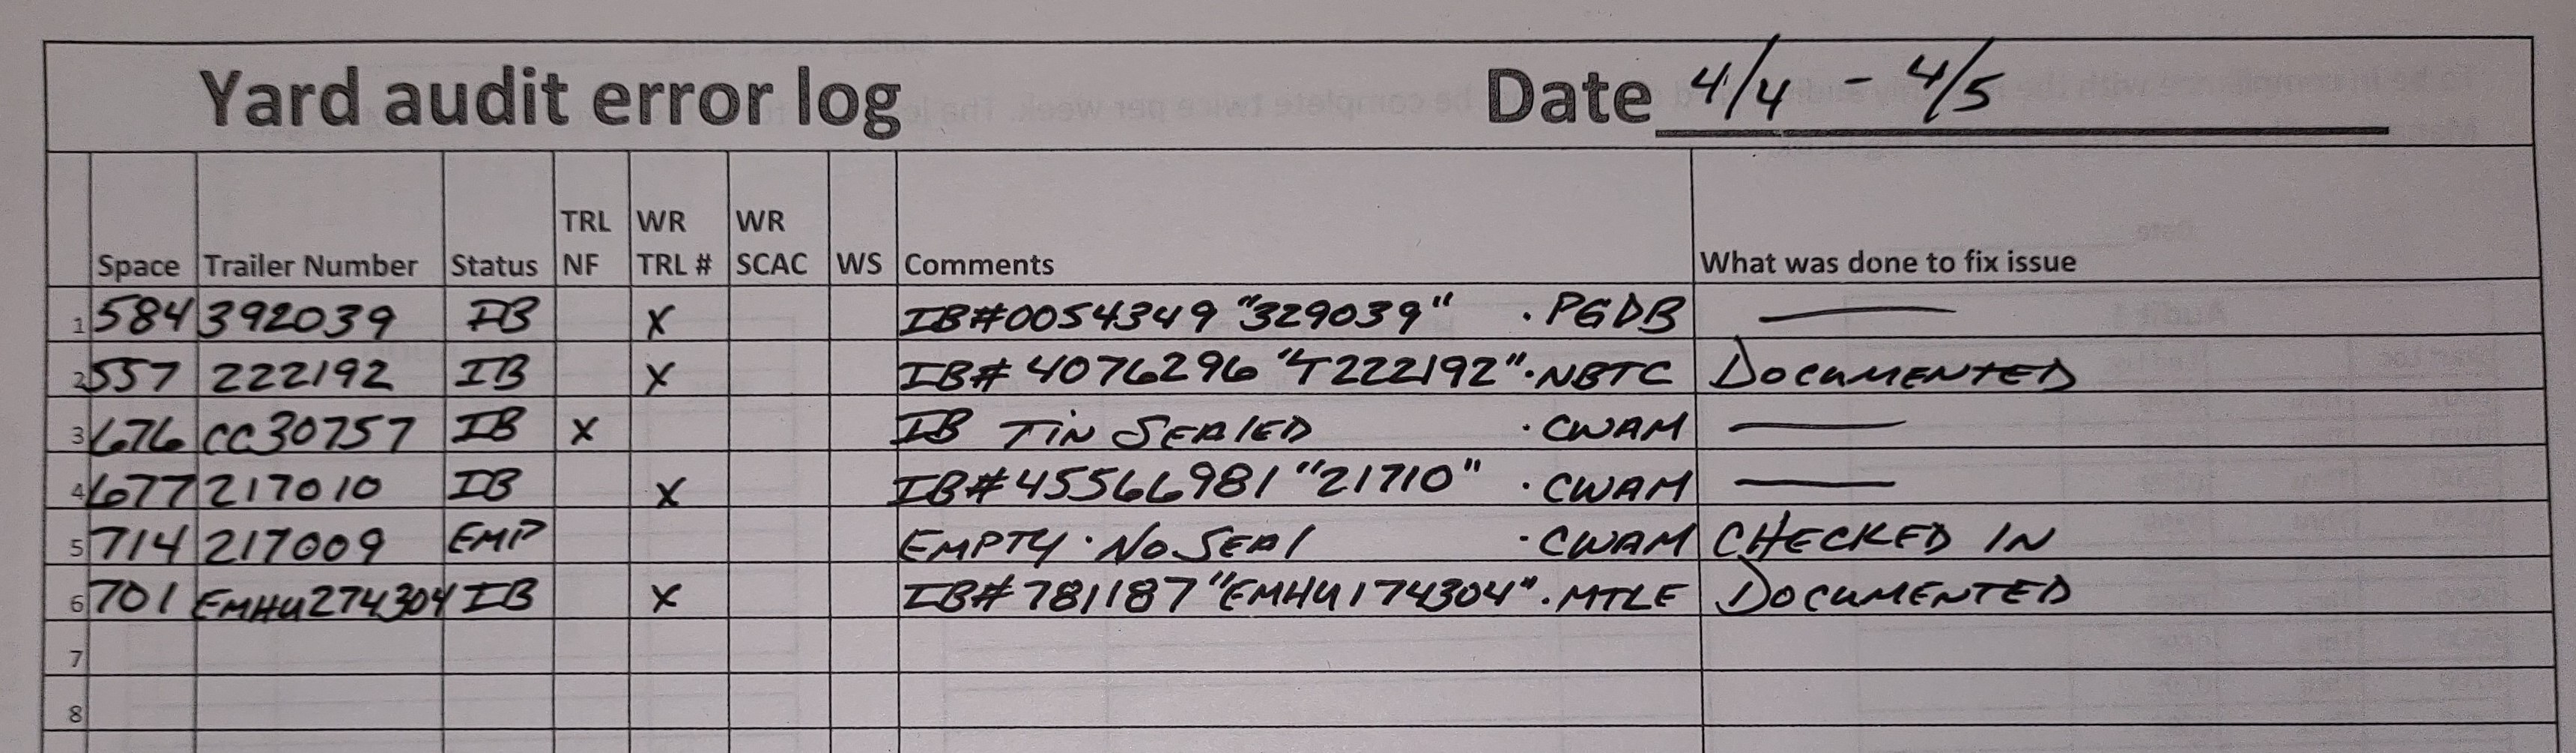 Yard audit error log Date 4/4 - 4/5
Space Trailer Number Status TRL NF WR TRL # WR SCAC WS Comments What was done to fix issue
1 584 392039 IB X IB#0054349 "329039" · PGDB —
2 557 222192 IB X IB# 4076296 "T222192" · NBTC DOCUMENTED
3 676 CC30757 IB X IB TIN SEALED · CWAM —
4 677 217010 IB X IB#45566981 "21710" · CWAM —
5 714 217009 EMP EMPTY · NO SEAL · CWAM CHECKED IN
6 701 EMHU274304 IB X IB# 781187 "EMHU174304" · MTLE DOCUMENTED
7
8